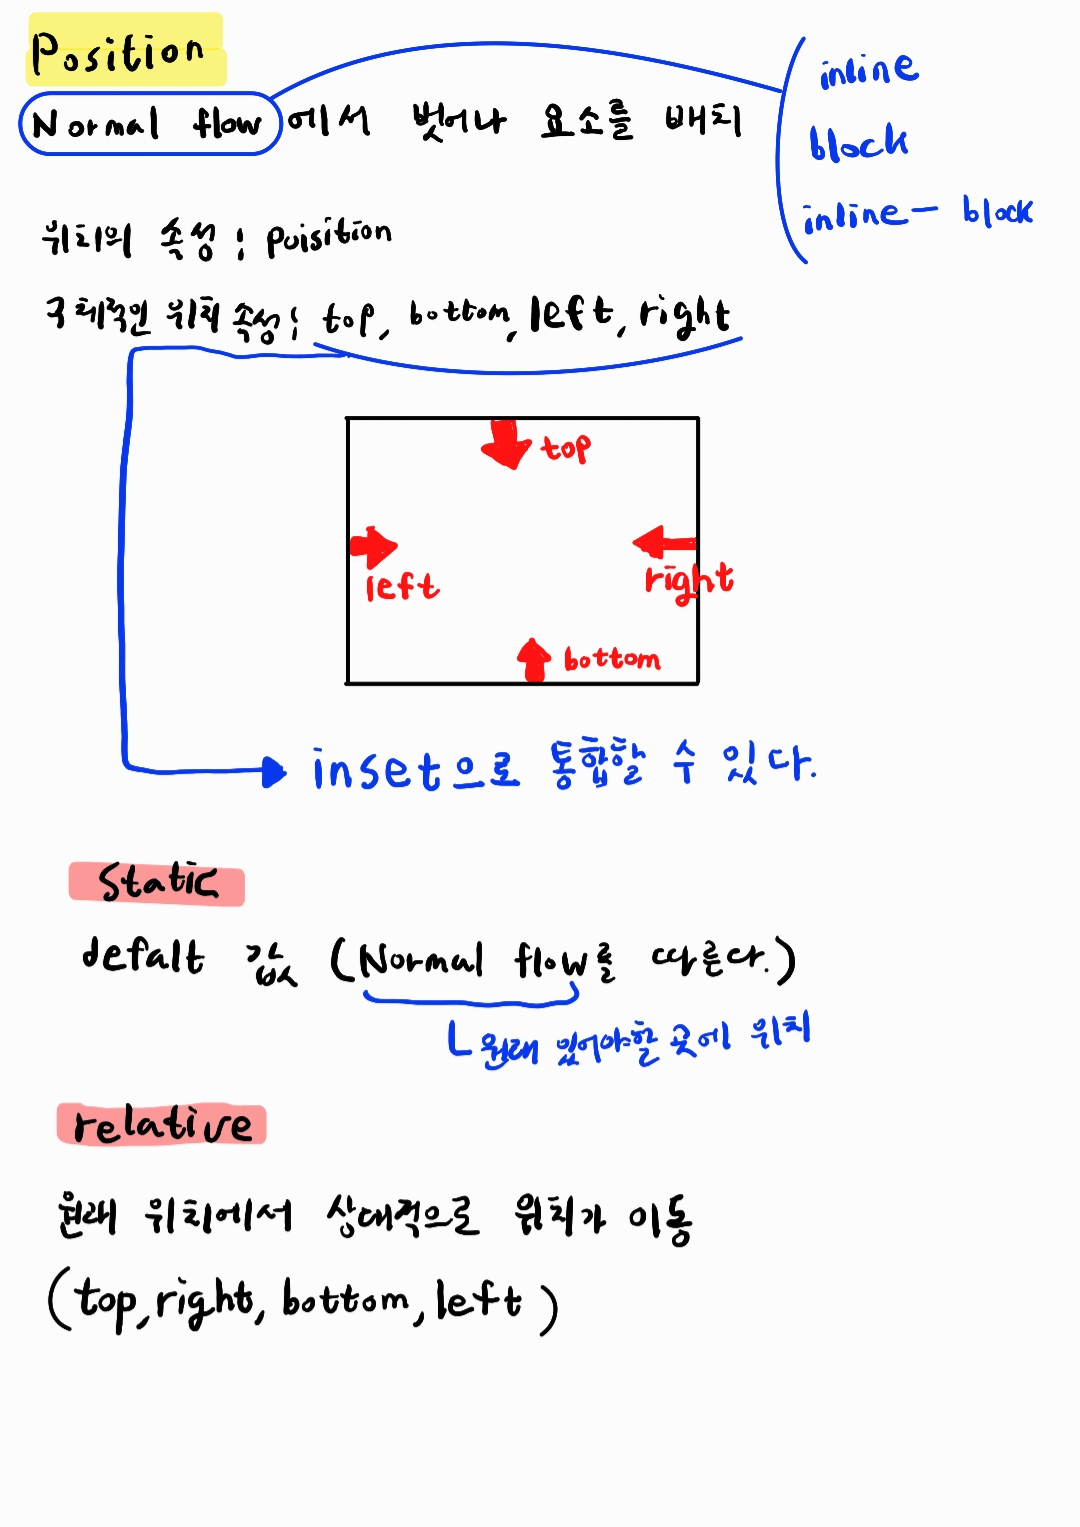 Position
Normal flow에서 벗어나 요소를 배치
inline
block
inline - block
위치의 속성 : poisition
구체적인 위치 속성 : top, bottom, left, right
top
left
right
bottom
inset으로 통합할 수 있다.
static
defalt 값 (Normal flow를 따른다.)
ㄴ 원래 있어야할 곳에 위치
relative
원래 위치에서 상대적으로 위치가 이동
(top, right, bottom, left)